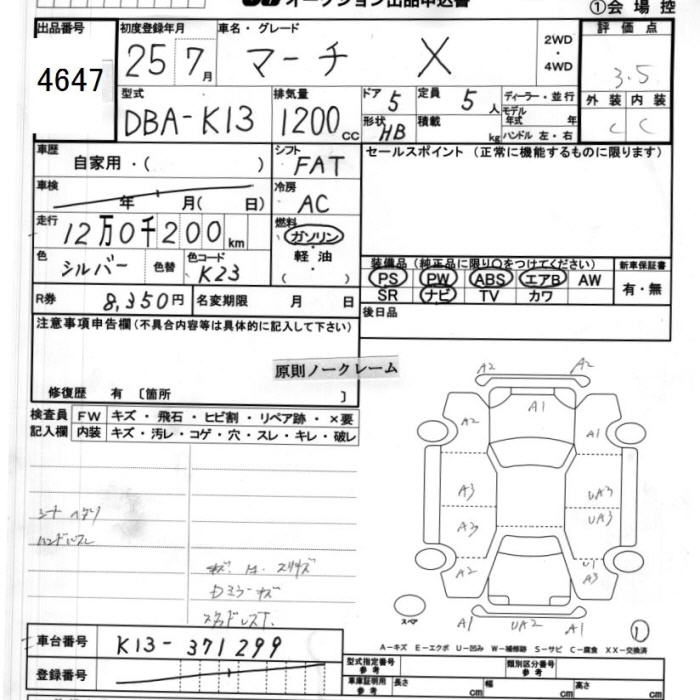 オークション出品申込書
①会場控
出品番号
4647
初度登録年月
25 7月
車名・グレード
マーチ X
2WD・4WD
評価点
3.5
型式
DBA-K13
排気量
1200cc
ドア 5
定員 5人
形状 HB
積載 kg
ディーラー・並行
モデル年式 年
ハンドル 左・右
外装 内装
C C
車歴
自家用・( )
シフト
FAT
車検
年 月( 日)
冷房
AC
走行
12万0千200km
燃料
ガソリン
軽油
( )
色
シルバー
色替
色コード
K23
R券
8,350円
名変期限 月 日
セールスポイント (正常に機能するものに限ります)
装備品 (純正品に限り○をつけてください)
PS PW ABS エアB AW
SR ナビ TV カワ
新車保証書
有・無
後日品
注意事項申告欄(不具合内容等は具体的に記入して下さい)
原則ノークレーム
修復歴 有 〔箇所 〕
検査員記入欄
FW キズ・飛石・ヒビ割・リペア跡・×要
内装 キズ・汚レ・コゲ・穴・スレ・キレ・破レ
A2 A2
A1
A2 A1
A3 UA3
A3 UA3
A2 U1 A3
スペア
A1 UA2 A1
①
Dミラーキズ
A－キズ E－エクボ U－凹み W－補修跡 S－サビ C－腐食 XX－交換済
車台番号
K13-371299
登録番号
型式指定番号 参考
類別区分番号 参考
車庫証明用 参考
長さ cm 幅 cm 高さ cm